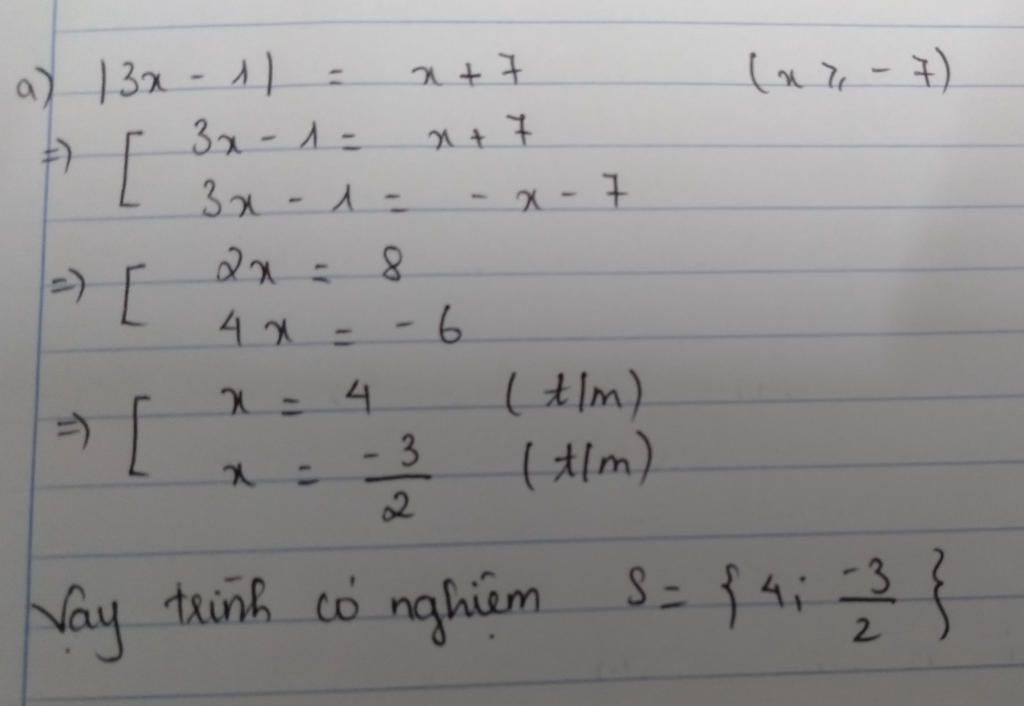 a) |3x - 1| = x + 7 (x ⩾ - 7)
=> [ 3x - 1 = x + 7
3x - 1 = - x - 7
=> [ 2x = 8
4x = - 6
=> [ x = 4 (t/m)
x = -3/2 (t/m)
Vậy trình có nghiệm S = { 4; -3/2 }